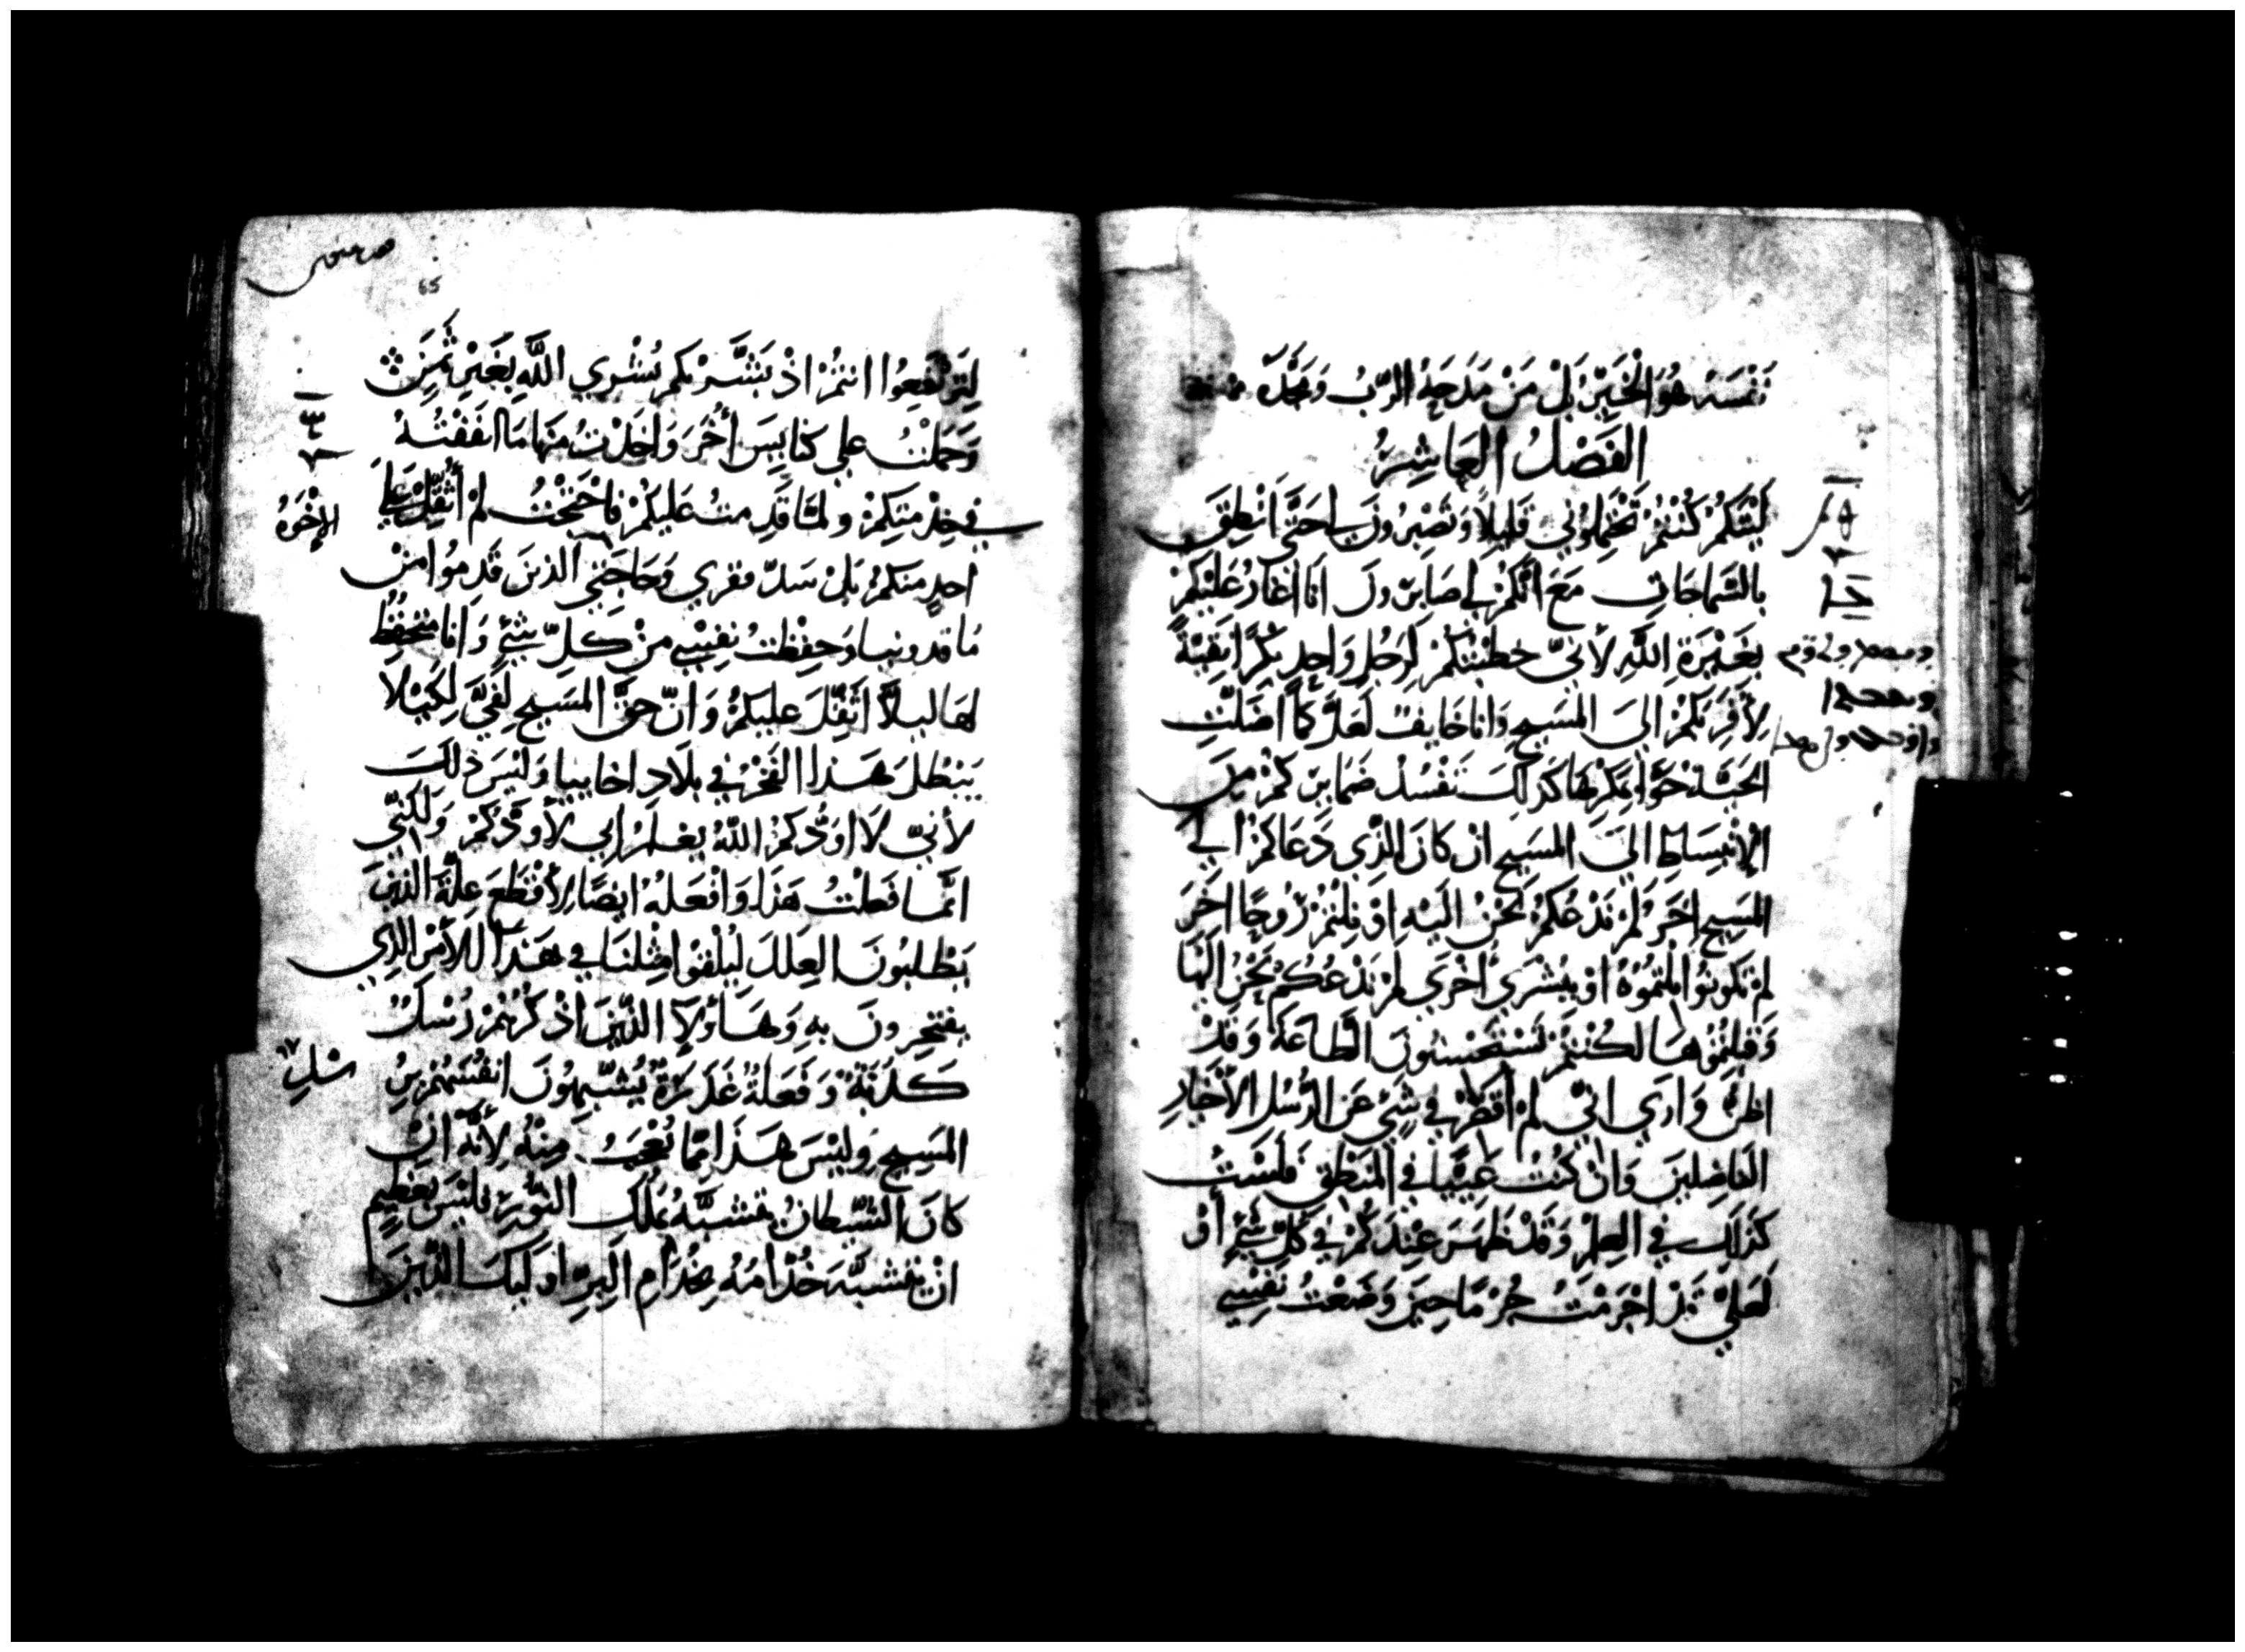 نَفْسَهُ هُوَ الْخَيِّرُ بَلْ مَنْ مَدَحَهُ الرّبُ وَمَجَّدَهُ
الفَصْلُ العَاشِرُ
لَيْتَكُمْ كُنْتُمْ تَحْتَمِلُوُني قَلِيلاً وَتَصْبِرُونَ لي حَتَّي اَنْطِقَ
بالسَّمَاجَاتِ مَعَ انَّكمْ لي صَابِرُونَ اَنَا اغَارُ عَلَيْكمْ
بِغَيْرَةِ اللَّهِ لأنّي خطَبْتُكمْ لِرَجُلٍ وَاحِدٍ بِكْرًا نَقِيَّةً
لأُقَرِّبَكمْ اليَ المَسِيحِ وَانا خَايفٌ لَعَلَّ كَمَا اضَلَّتِ
الحَيَّةُ حَوَّا بِمَكْرِهَا كَذلِكَ تَفْسُدُ ضَمَايِرُكمْ مِنَ
الإنْبِسَاطِ اليَ المَسِيحِ انْ كانَ الذِي دَعَاكمْ الي
المَسِيحِ اخَرَ لمْ نَدْعُكمْ نَحْنُ الَيْهِ اوْ نِلْتُمْ رُوحًا اخَرَ
لمْ تَكُونُوا نِلْتُمُوُهُ اوْ بِبُشْرَي اُخْرَي لمْ نَدْعُكُمْ نَحْنُ الَيْهَا
وَقَبِلْتُمُوُهَا لَكُنْتُمْ تَسْتَحْسِنُونَ الطَّاعَةَ وَقَدْ
اظنُّ وَارَي انّي لمْ أُقَصِّرْ في شَيْءٍ عَنِ الرُّسُلِ الأخْيَارِ
الفَاضِلِينَ وَانْ كُنْتُ عَيِيًّا في المَنْطِقِ فَلَسْتُ
كَذلِكَ في العِلْمِ وَقَدْ ظَهَرَ عِنْدَكمْ في كُلِّ شَيْءٍ أوْ
لَعَلّي قَدْ اجْرَمْتُ جُرْمًا حِينَ وَضَعْتُ نفْسِي
65
لِتَرْتَفِعُوا انتُمْ اذْ بَشَّرْتكم بُشْرَي اللَّهِ بِغَيْرِ ثَمَنٍ
وَحَمَلْتُ علي كنايِسَ أُخَرَ وَاخَذْتُ مِنهَا مَا انفَقْتُهُ
في خِدْمَتِكمْ ولمَّا قَدِمتُ عَليكمْ فاحْتَجْتُ لمْ أُثَقِّلْ عَلَي
الإخْوَةُ
احدٍ منكمْ بَلْ سَدَّ فقري وَحَاجَتي الذينَ قَدِمُوا منْ
مَاقدونيا وَحفِظتُ نفسِي منْ كلِّ شَيْءٍ وَانا متحَفِّظ
لهَا ليلاَّ اثَقِّلَ عليكمْ وَانّ حَقَّ المَسِيحِ لفيَّ لِكَيْلاَ
يَبْطُلَ هَذا الفَخْرُ في بلاَدِ اخاييا وَليْسَ ذلكَ
لأنّي لاَ اوَدُّكمْ اللّهُ يعلَمُ اني لأوَدُّكمْ وَلَكنّي
انّمَا فعلْتُ هَذَا وَافْعَلهُ ايضًا لأقْطَعَ علّةَ الذينَ
يَطْلبُونَ العِلَلَ ليُلْفَوْا مثلنَا في هَذَا الأمْرِ الذِي
يفتَخِرونَ بهِ وَهَاؤلآ الذّينَ اذْكُرُهمْ رُسُلٌ
كَذَبَةٌ وَفَعَلةٌ غَدَرَةٌ يُشَبِّهُونَ انفُسَهُمْ بِرُسُلِ
المَسِيحِ وَليْسَ هَذَا ممَّا يُعْجَبُ مِنْهُ لأنَّهُ انْ
كانَ الشّيطانُ يتشبَّهُ بمَلَكِ النُّورِ فليْسَ بعَظيمٍ
انْ تتشبَّهَ خُدَّامُهُ بخُدَّامِ البِرِّ اولَيكَ الذّينَ